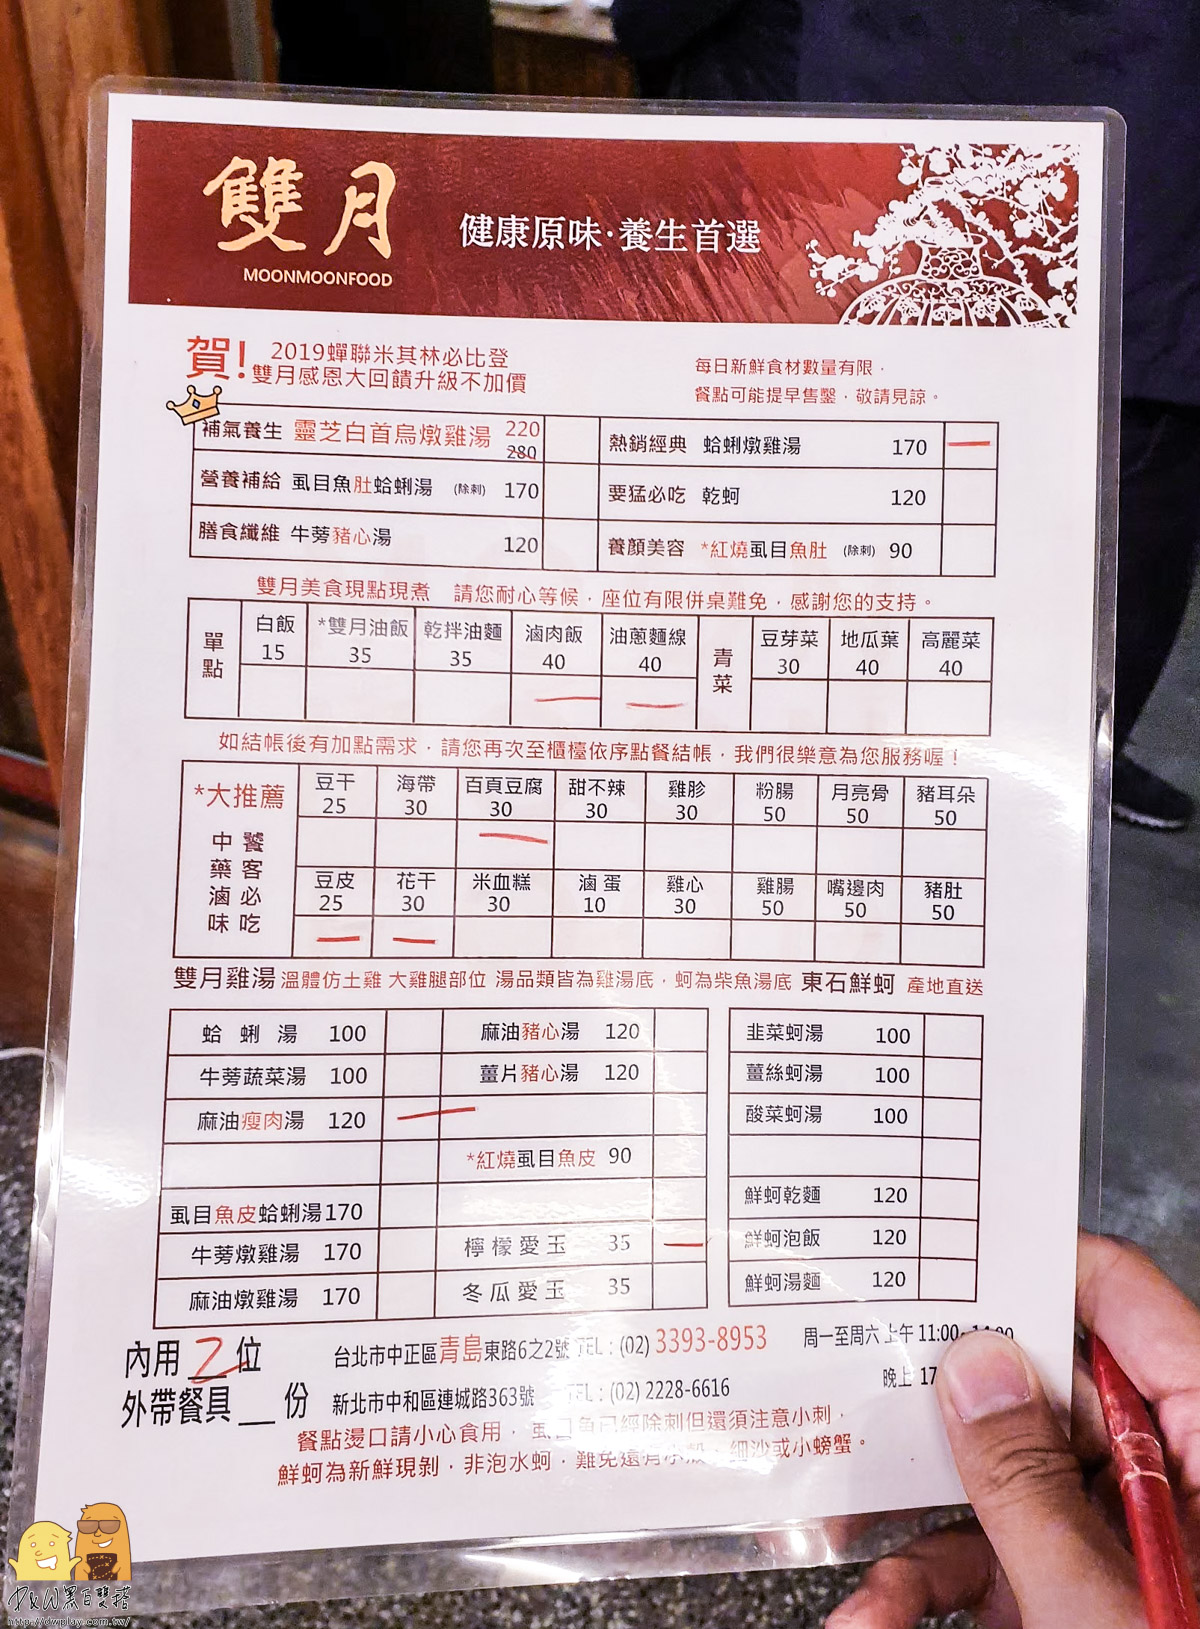 雙月
MOONMOONFOOD
健康原味·養生首選
賀!
2019蟬聯米其林必比登
雙月感恩大回饋升級不加價
每日新鮮食材數量有限，
餐點可能提早售鑿，敬請見諒。
補氣養生 靈芝白首烏燉雞湯 220
280
熱銷經典 蛤蜊燉雞湯 170
營養補給 虱目魚肚蛤蜊湯 (除刺) 170
要猛必吃 乾蚵 120
膳食纖維 牛蒡豬心湯 120
養顏美容 *紅燒虱目魚肚 (除刺) 90
雙月美食現點現煮 請您耐心等候，座位有限併桌難免，感謝您的支持。
單點
白飯 *雙月油飯 乾拌油麵 滷肉飯 油蔥麵線
15 35 35 40 40
青菜
豆芽菜 地瓜葉 高麗菜
30 40 40
如結帳後有加點需求，請您再次至櫃檯依序點餐結帳，我們很樂意為您服務喔！
*大推薦
中藥滷味
饕客必吃
豆干 海帶 百頁豆腐 甜不辣 雞胗 粉腸 月亮骨 豬耳朵
25 30 30 30 30 50 50 50
豆皮 花干 米血糕 滷蛋 雞心 雞腸 嘴邊肉 豬肚
25 30 30 10 30 50 50 50
雙月雞湯 溫體仿土雞 大雞腿部位 湯品類皆為雞湯底，蚵為柴魚湯底 東石鮮蚵 產地直送
蛤蜊湯 100
牛蒡蔬菜湯 100
麻油瘦肉湯 120
虱目魚皮蛤蜊湯 170
牛蒡燉雞湯 170
麻油燉雞湯 170
麻油豬心湯 120
薑片豬心湯 120
*紅燒虱目魚皮 90
檸檬愛玉 35
冬瓜愛玉 35
韭菜蚵湯 100
薑絲蚵湯 100
酸菜蚵湯 100
鮮蚵乾麵 120
鮮蚵泡飯 120
鮮蚵湯麵 120
內用 2 位
外帶餐具__份
台北市中正區青島東路6之2號 TEL：(02) 3393-8953
新北市中和區連城路363號 TEL：(02) 2228-6616
周一至周六 上午 11:00-14:00
晚上 17
餐點燙口請小心食用，虱目魚已經除刺但還須注意小刺，
鮮蚵為新鮮現剝，非泡水蚵，難免還有小殼、細沙或小螃蟹。
D&W黑白雙搭
http://dwplay.com.tw/